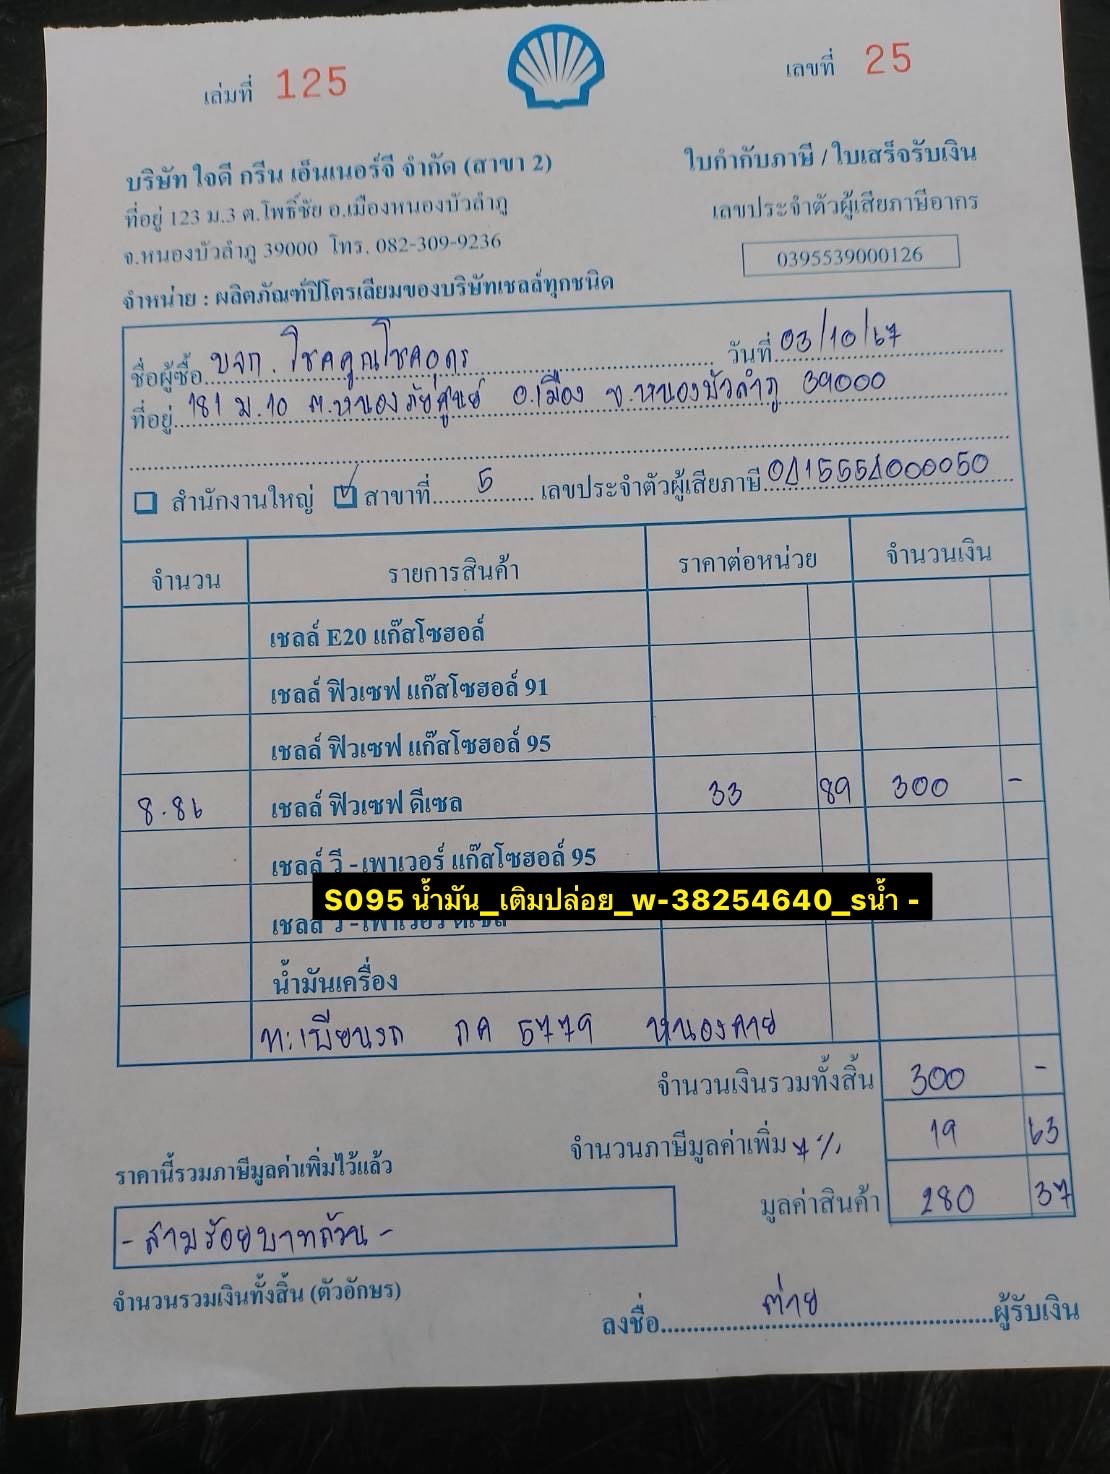 เล่มที่ 125
เลขที่ 25
บริษัท ใจดี กรีน เอ็นเนอร์จี จำกัด (สาขา 2)
ใบกำกับภาษี / ใบเสร็จรับเงิน
ที่อยู่ 123 ม.3 ต.โพธิ์ชัย อ.เมืองหนองบัวลำภู
เลขประจำตัวผู้เสียภาษีอากร
จ.หนองบัวลำภู 39000 โทร. 082-309-9236
0395539000126
จำหน่าย : ผลิตภัณฑ์ปิโตรเลียมของบริษัทเชลล์ทุกชนิด
ชื่อผู้ซื้อ บจก. โชคคูณโชคอุดร วันที่ 03/10/67
ที่อยู่ 181 ม.10 ต.หนองภัยศูนย์ อ.เมือง จ.หนองบัวลำภู 39000
สำนักงานใหญ่ สาขาที่ 5 เลขประจำตัวผู้เสียภาษี 0415554000050
จำนวน รายการสินค้า ราคาต่อหน่วย จำนวนเงิน
เชลล์ E20 แก๊สโซฮอล์
เชลล์ ฟิวเซฟ แก๊สโซฮอล์ 91
เชลล์ ฟิวเซฟ แก๊สโซฮอล์ 95
8.86 เชลล์ ฟิวเซฟ ดีเซล 33 89 300 -
เชลล์ วี - เพาเวอร์ แก๊สโซฮอล์ 95
S095 น้ำมัน_เติมปล่อย_w-38254640_sน้ำ -
เชลล์ วี - เพาเวอร์ ดีเซล
น้ำมันเครื่อง
ทะเบียนรถ ภค 5779 หนองคาย
จำนวนเงินรวมทั้งสิ้น 300 -
จำนวนภาษีมูลค่าเพิ่ม 7% 19 63
ราคานี้รวมภาษีมูลค่าเพิ่มไว้แล้ว
มูลค่าสินค้า 280 37
- สามร้อยบาทถ้วน -
จำนวนรวมเงินทั้งสิ้น (ตัวอักษร)
ลงชื่อ ต่าย ผู้รับเงิน